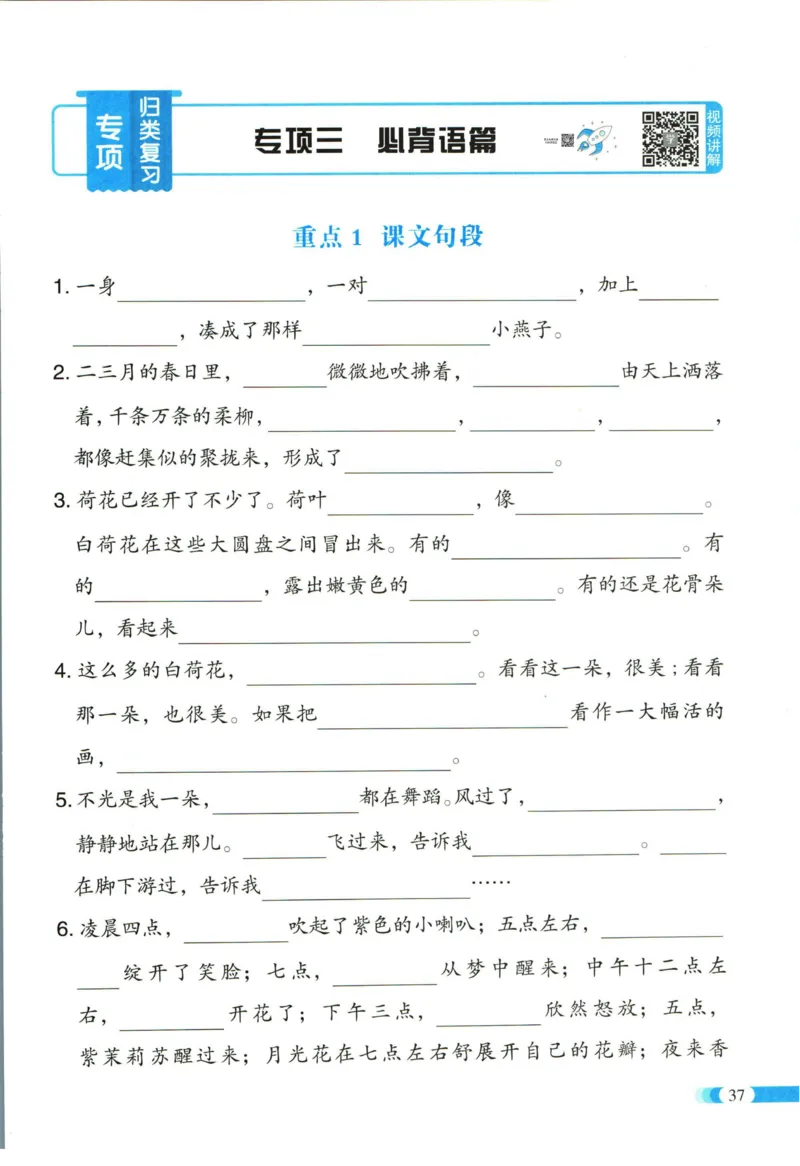 专项
归类复习
专项三 必背语篇
视频讲解
重点1 课文句段
1. 一身____________，一对____________，加上______
________，凑成了那样____________小燕子。
2. 二三月的春日里，______微微地吹拂着，__________由天上洒落
着，千条万条的柔柳，____________，________，________，
都像赶集似的聚拢来，形成了____________。
3. 荷花已经开了不少了。荷叶__________，像____________。
白荷花在这些大圆盘之间冒出来。有的______________。有
的__________，露出嫩黄色的__________。有的还是花骨朵
儿，看起来__________________。
4. 这么多的白荷花，______________。看看这一朵，很美；看看
那一朵，也很美。如果把________________看作一大幅活的
画，____________________。
5. 不光是我一朵，__________都在舞蹈。风过了，____________，
静静地站在那儿。______飞过来，告诉我__________。______
在脚下游过，告诉我____________……
6. 凌晨四点，________吹起了紫色的小喇叭；五点左右，________
____绽开了笑脸；七点，________从梦中醒来；中午十二点左
右，________开花了；下午三点，________欣然怒放；五点，
紫茉莉苏醒过来；月光花在七点左右舒展开自己的花瓣；夜来香
37